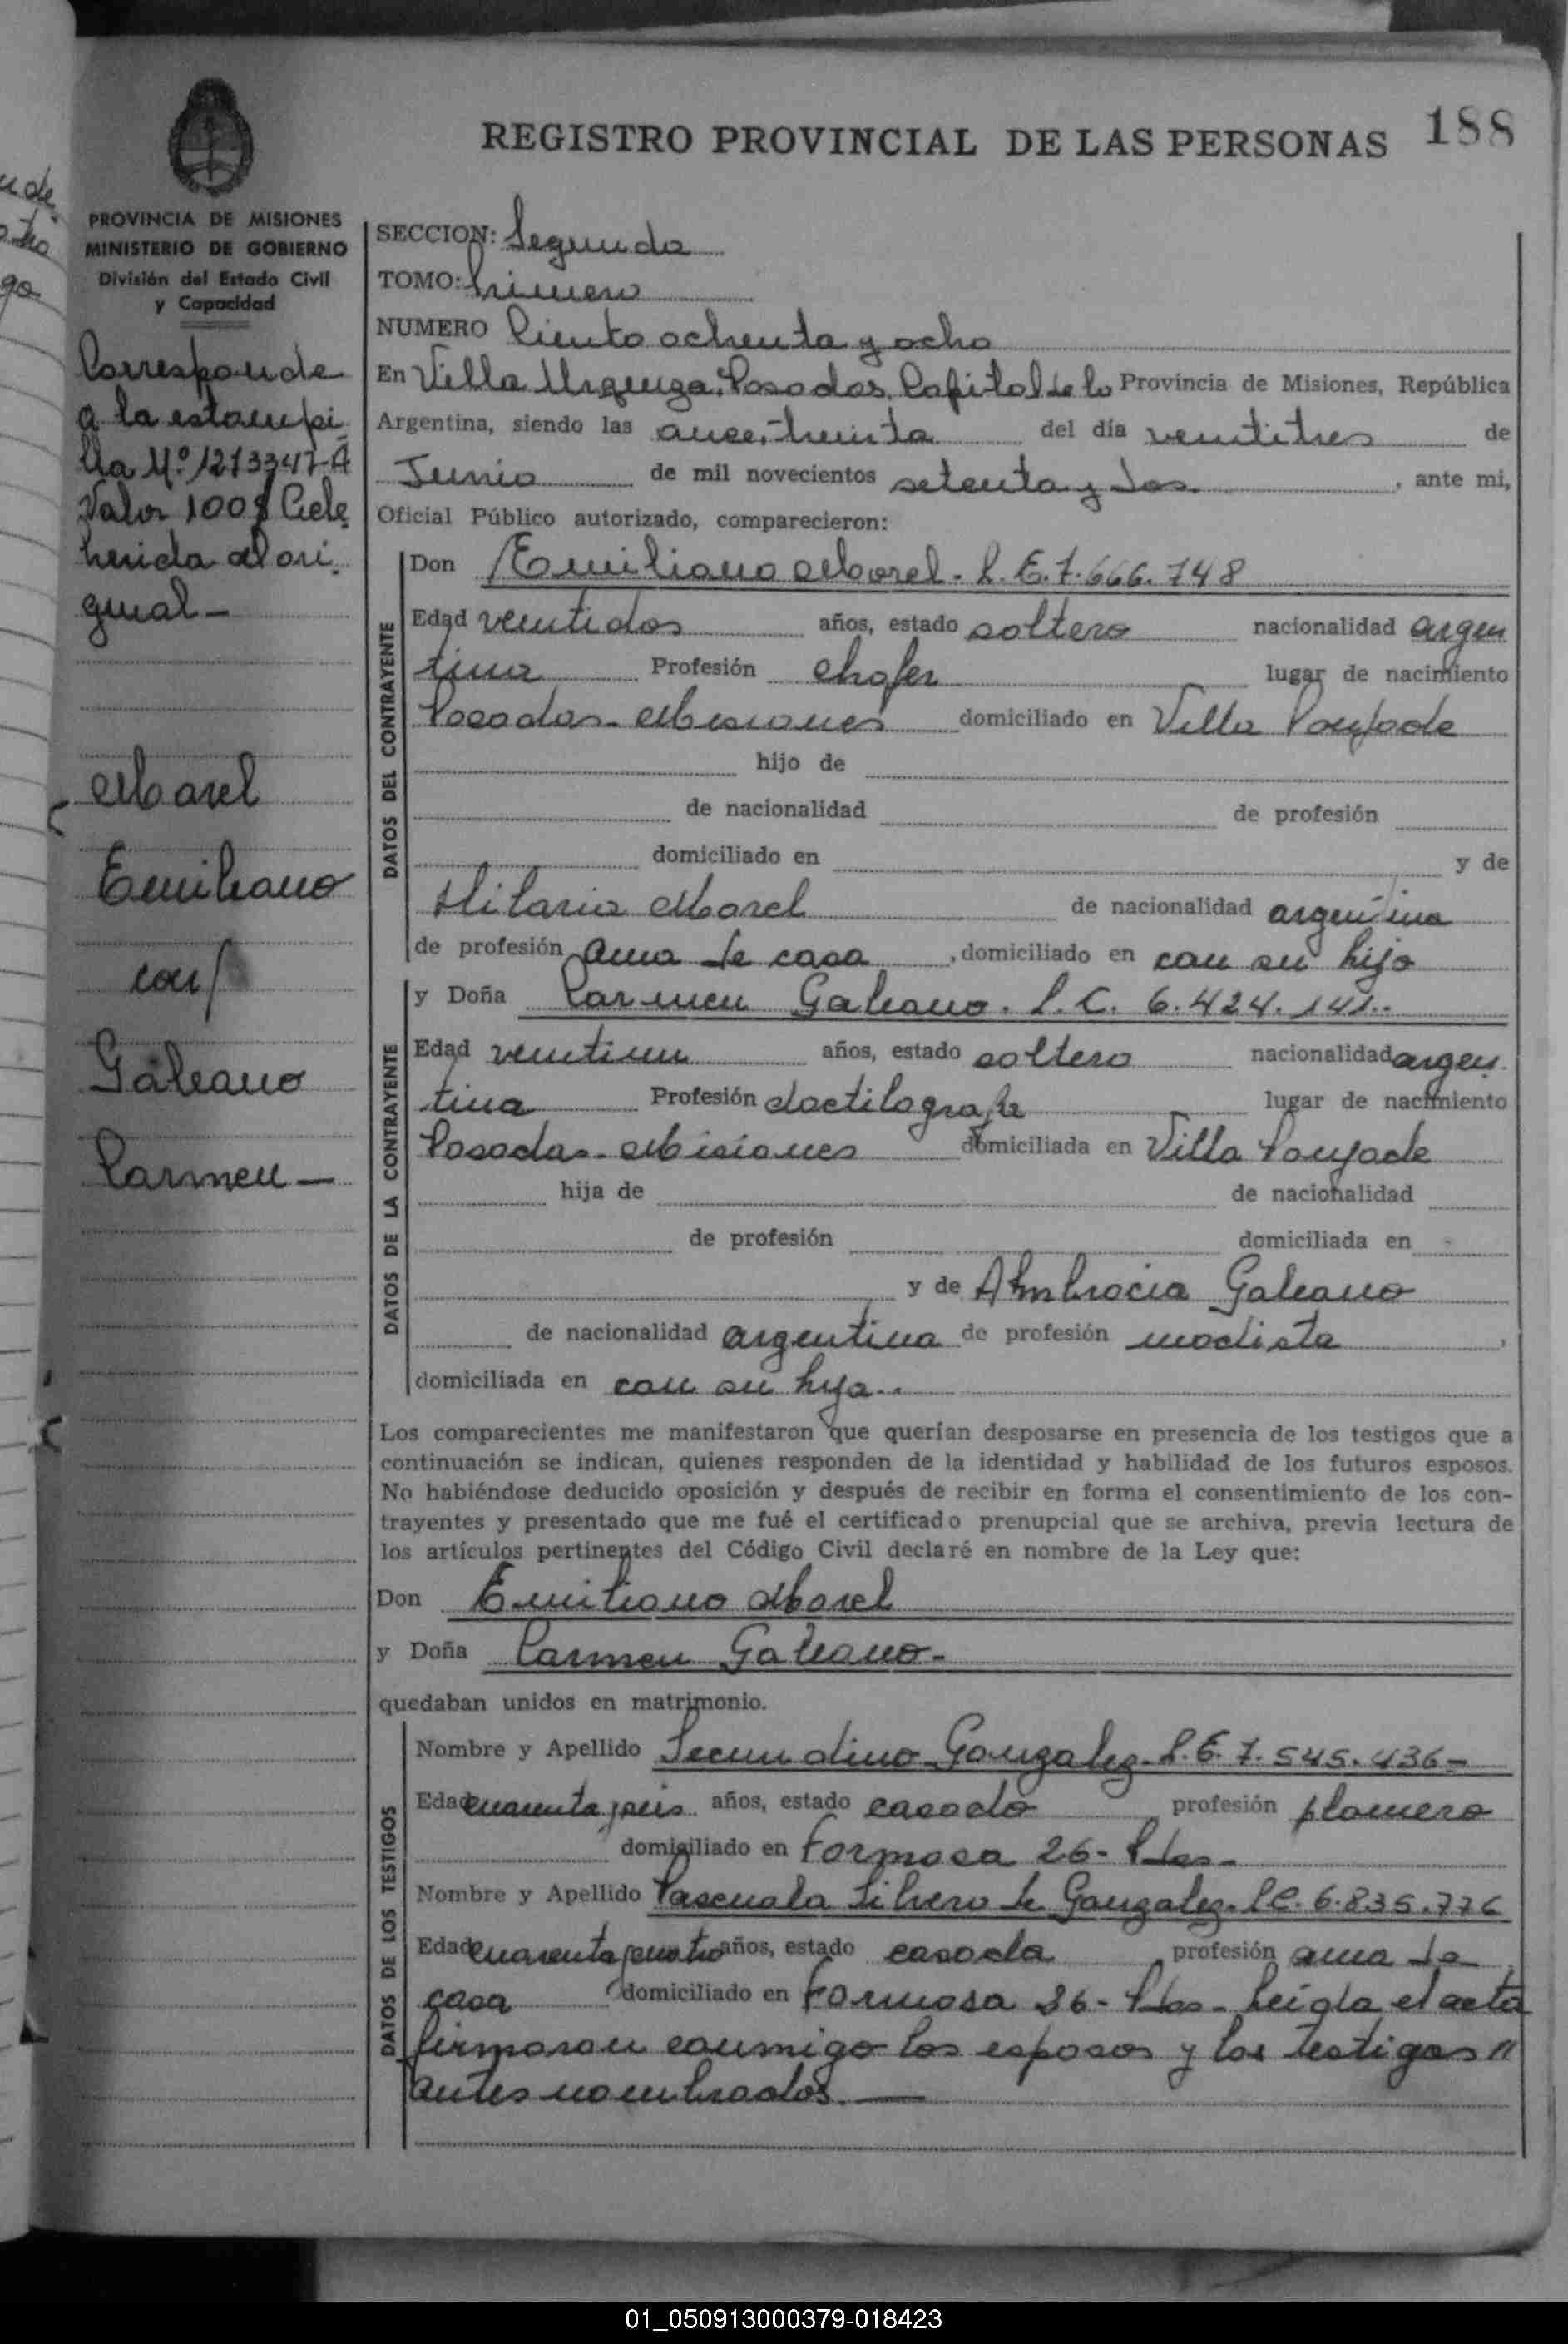 188
REGISTRO PROVINCIAL DE LAS PERSONAS
PROVINCIA DE MISIONES
MINISTERIO DE GOBIERNO
División del Estado Civil
y Capacidad
Corresponde
a la estampi
lla Nº 1213347-A
Valor 100$
herida al ori
ginal -
Morel
Emiliano
con
Galeano
Carmen -
SECCION: Segunda
TOMO: Primero
NUMERO Ciento ochenta y ocho
En Villa Urquiza, Posadas, Capital de la Provincia de Misiones, República
Argentina, siendo las once, treinta del día veintitres de
Junio de mil novecientos setenta y dos , ante mi,
Oficial Público autorizado, comparecieron:
DATOS DEL CONTRAYENTE
Don Emiliano Morel - L.E. 7.666.748
Edad veintidos años, estado soltero nacionalidad argen
tina Profesión chofer lugar de nacimiento
Posadas - Misiones domiciliado en Villa Poujade
hijo de
de nacionalidad de profesión
domiciliado en y de
Hilaria Morel de nacionalidad argentina
de profesión ama de casa , domiciliado en con su hijo
DATOS DE LA CONTRAYENTE
y Doña Carmen Galeano. L.C. 6.424.141..
Edad veintiun años, estado soltero nacionalidad argen
tina Profesión dactilografa lugar de nacimiento
Posadas - Misiones domiciliada en Villa Poujade
hija de de nacionalidad
de profesión domiciliada en
y de Ambrocia Galeano
de nacionalidad argentina de profesión modista ,
domiciliada en con su hija..
Los comparecientes me manifestaron que querían desposarse en presencia de los testigos que a
continuación se indican, quienes responden de la identidad y habilidad de los futuros esposos.
No habiéndose deducido oposición y después de recibir en forma el consentimiento de los con-
trayentes y presentado que me fué el certificado prenupcial que se archiva, previa lectura de
los artículos pertinentes del Código Civil declaré en nombre de la Ley que:
Don Emiliano Morel
y Doña Carmen Galeano -
quedaban unidos en matrimonio.
DATOS DE LOS TESTIGOS
Nombre y Apellido Secundino Gonzalez - L.E. 7.545.436 -
Edad cuarenta y seis años, estado casado profesión plomero
domiciliado en Formosa 26 - Pdas -
Nombre y Apellido Pascuala Silvero de Gonzalez - L.C. 6.835.776
Edad cuarenta y cuatro años, estado casada , profesión ama de
casa domiciliado en Formosa 26 - Pdas - Leída el acta
firmaron conmigo los esposos y los testigos "
antes nombrados. —
01_050913000379-018423